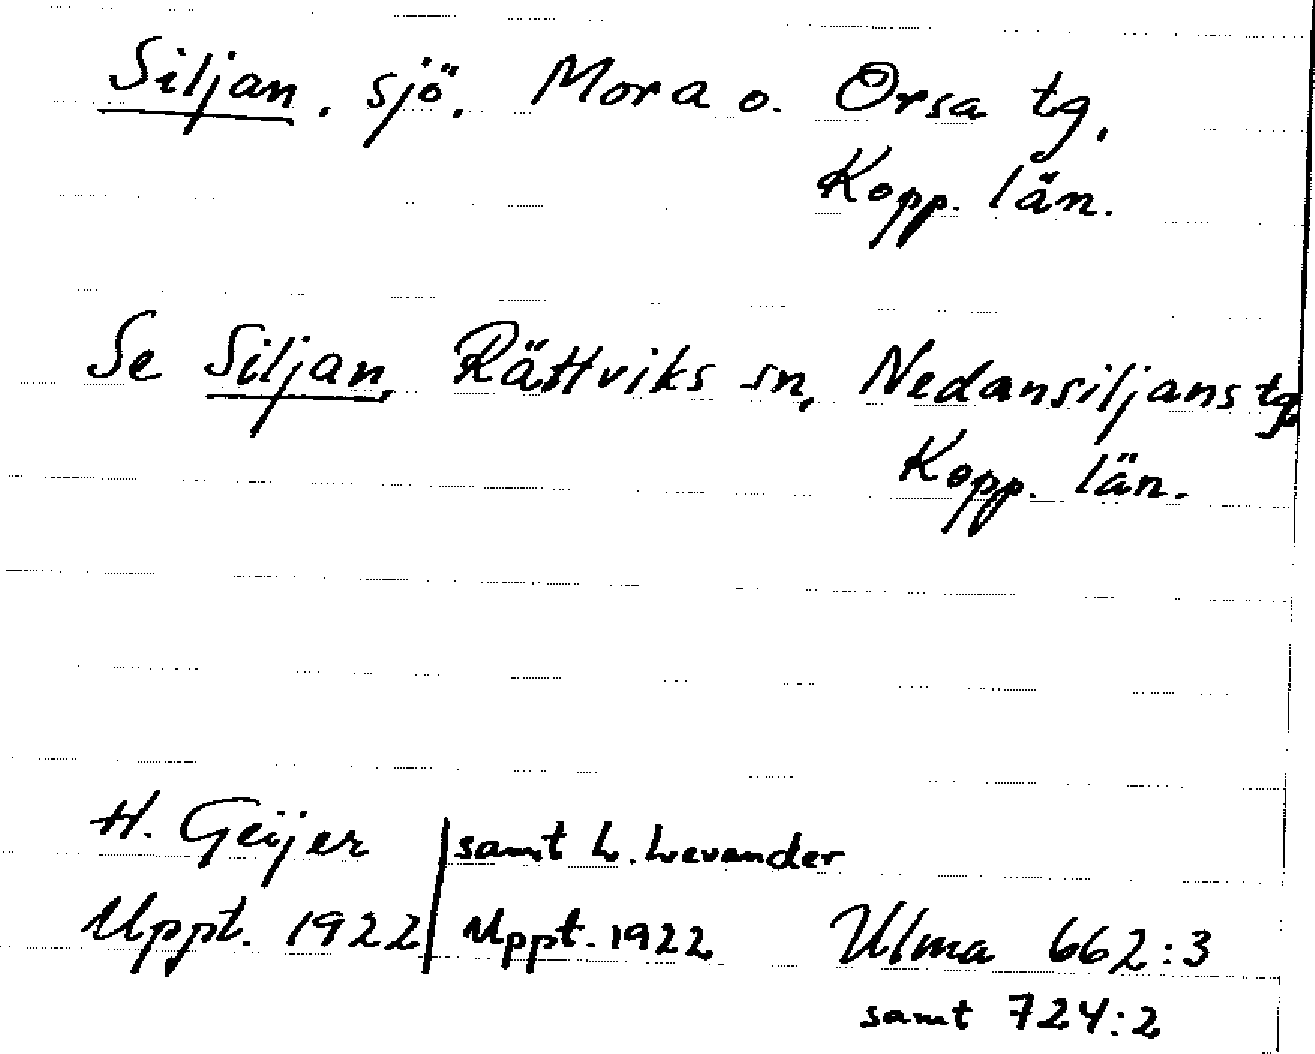 Siljan. sjö. Mora o. Orsa tg.
Kopp. län.
Se Siljan, Rättviks sn, Nedansiljans tg
Kopp. län.
H. Geijer | samt L. Levander
Uppt. 1922 | Uppt. 1922 Ulma 662:3
samt 724:2